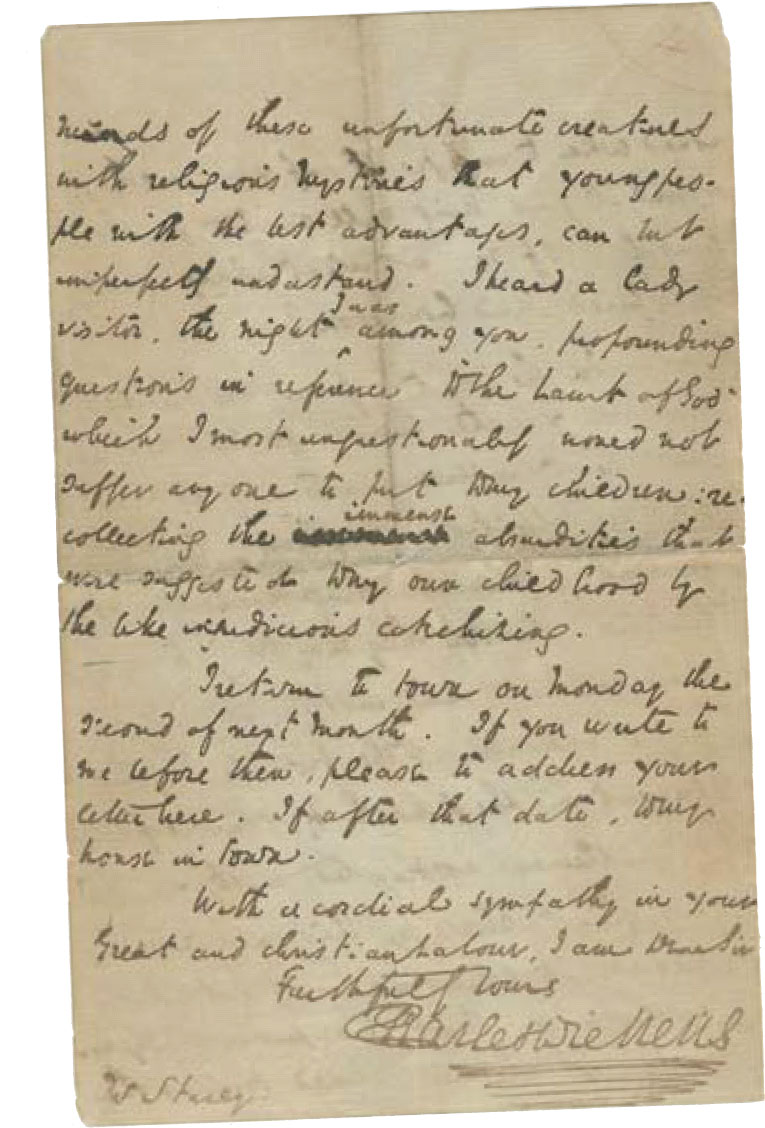 minds of these unfortunate creatures
with religious Mysteries that young peo-
ple with the best advantages, can but
imperfectly understand. I heard a lady
visitor, the night I was among you, propounding
questions in reference to "the Lamb of God"
which I most unquestionably would not
suffer any one to put to my children: re-
collecting the immense absurdities that
were suggested to my own childhood by
the like injudicious catechizing.
I return to town on Monday the
second of next Month. If you write to
me before then, please to address your
letter here. If after that date, to my
house in town.
With a cordial sympathy in your
Great and christian Labour, I am Dear Sir
Faithfully Yours
Charles Dickens
Mr Starey